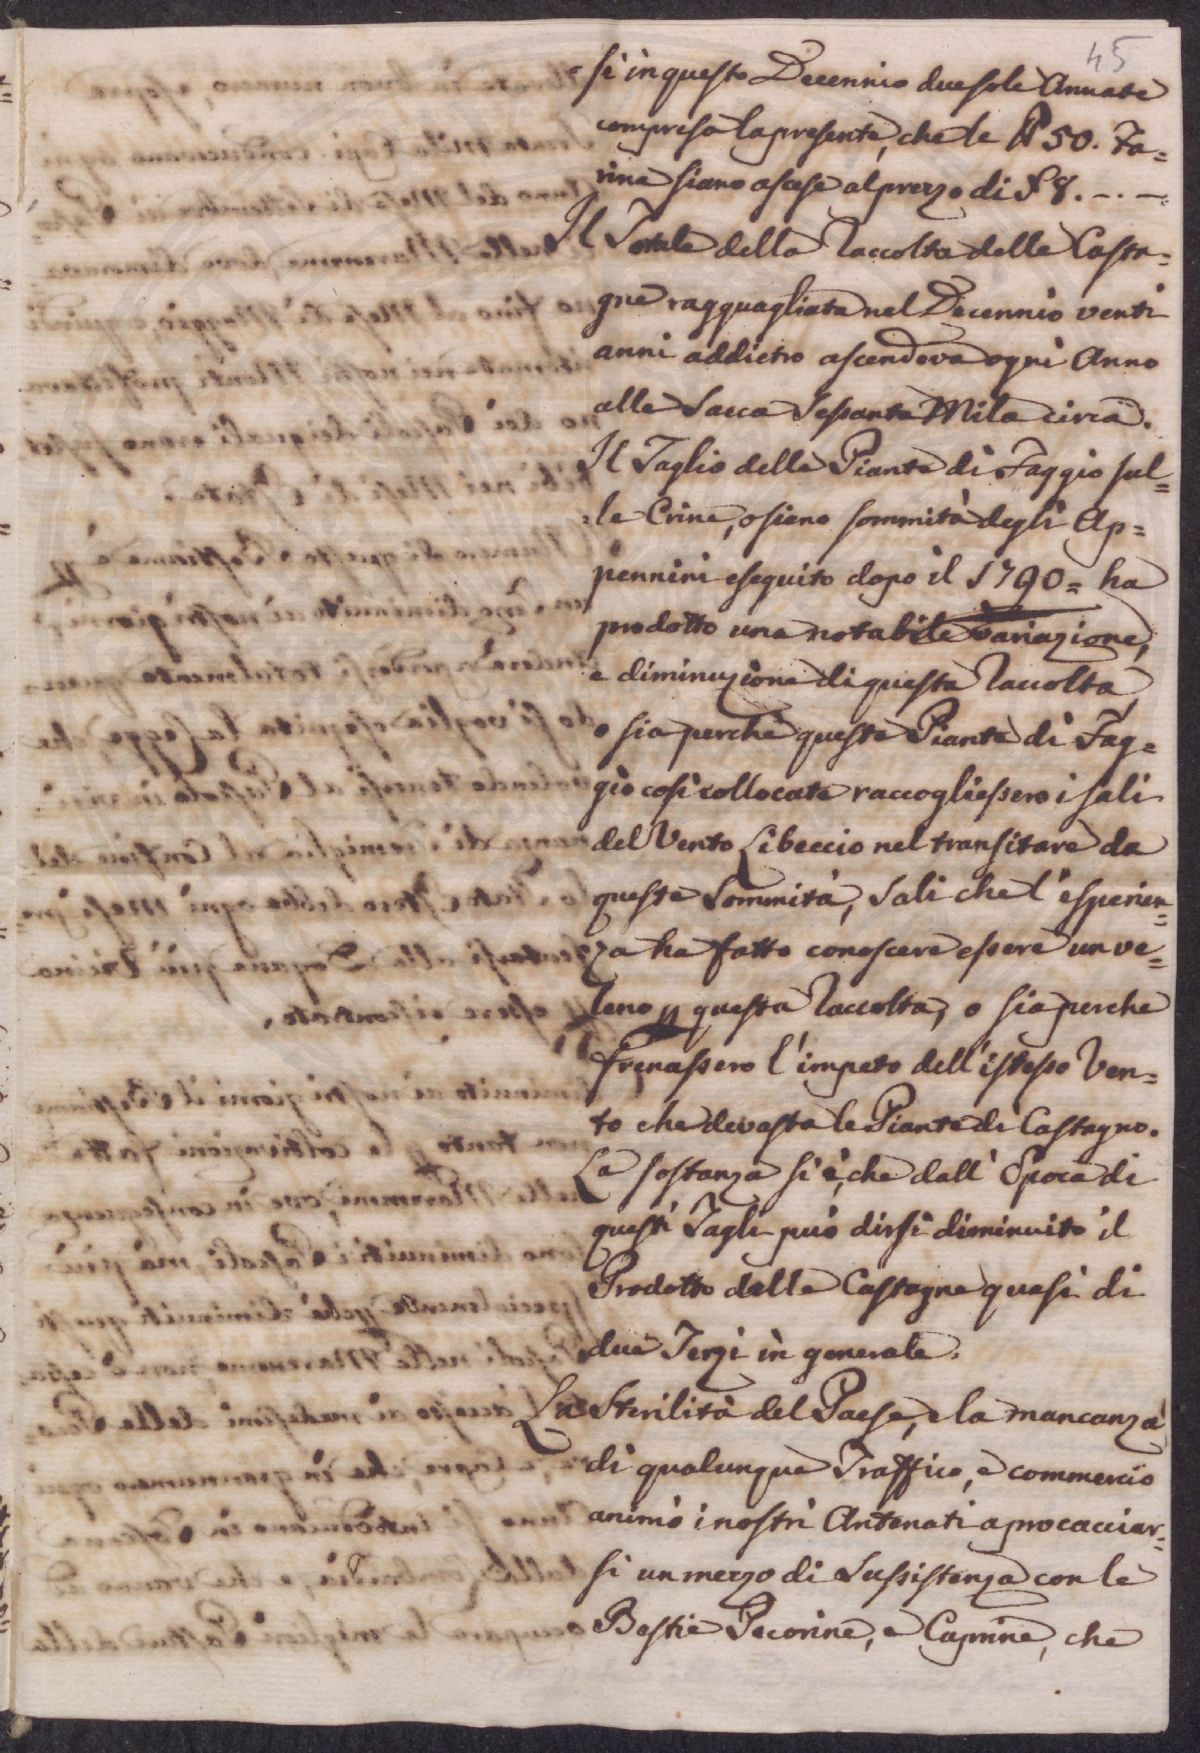 45
si in questo Decennio due sole Annate
compresa la presente, che le ℔ 50. Fa=
rine siano ascese al prezzo di £ 8. -. -.
Il Totale della Raccolta delle Casta=
gne ragguagliata nel Decennio venti
anni addietro ascendeva ogni Anno
alle Sacca Sessanta Mila circa.
Il Taglio delle Piante di Faggio sul=
le Crine, o sieno sommità degli Ap=
pennini eseguito dopo il 1790= ha
prodotto una notabile variazione,
e diminuzione di questa Raccolta,
o sia perchè queste Piante di Fag=
gio così collocate raccogliessero i sali
del Vento Libeccio nel transitare da
queste Sommità, Sali che l'esperien=
za ha fatto conoscere essere un ve=
leno p questa Raccolta, o sia perche
frenassero l'impeto dell'istesso Ven=
to che devasta le Piante di Castagno.
La sostanza si è, che dall' Epoca di
questi Tagli può dirsi diminuito il
Prodotto delle Castagne quasi di
due Terzi in generale.
La Sterilità del Paese, e la mancanza
di qualunque Traffico, e commercio
animò i nostri Antenati a procacciar=
si un mezzo di Sussistenza con le
Bestie Pecorine, e Caprine, che